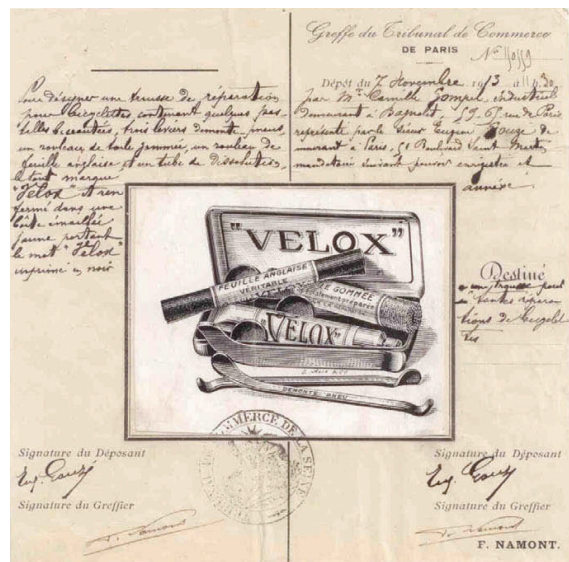 Greffe du Tribunal de Commerce
DE PARIS
Dépôt du 7 Novembre 1913 à 11 h. 30
par Mr Camille Gompel industriel
demeurant à Bagnolet, 59.61 rue de Paris
représenté par le Sieur Eugène Gougé de-
meurant à Paris, 51 Boulevard Saint Martin
mandataire suivant pouvoir enregistré et
annexé
Pour désigner une trousse de réparation
pour bicyclettes contenant quelques pas-
tilles biseautées, trois leviers démonte-pneus,
un rouleau de toile gommée, un rouleau de
feuille anglaise et un tube de dissolution,
le tout marqué
"Velox" et ren
fermé dans une
boîte émaillée
jaune portant
le mot "Velox"
imprimé en noir
"VELOX"
FEUILLE ANGLAISE
VÉRITABLE
GOMMÉE
VELOX
DÉMONTE PNEU
Destiné
à une trousse pour
toutes répara
tions de bicyclet
tes
COMMERCE DE LA SEINE
Signature du Déposant
Eug. Gougé
Signature du Greffier
Signature du Déposant
Eug. Gougé
Signature du Greffier
F. NAMONT.